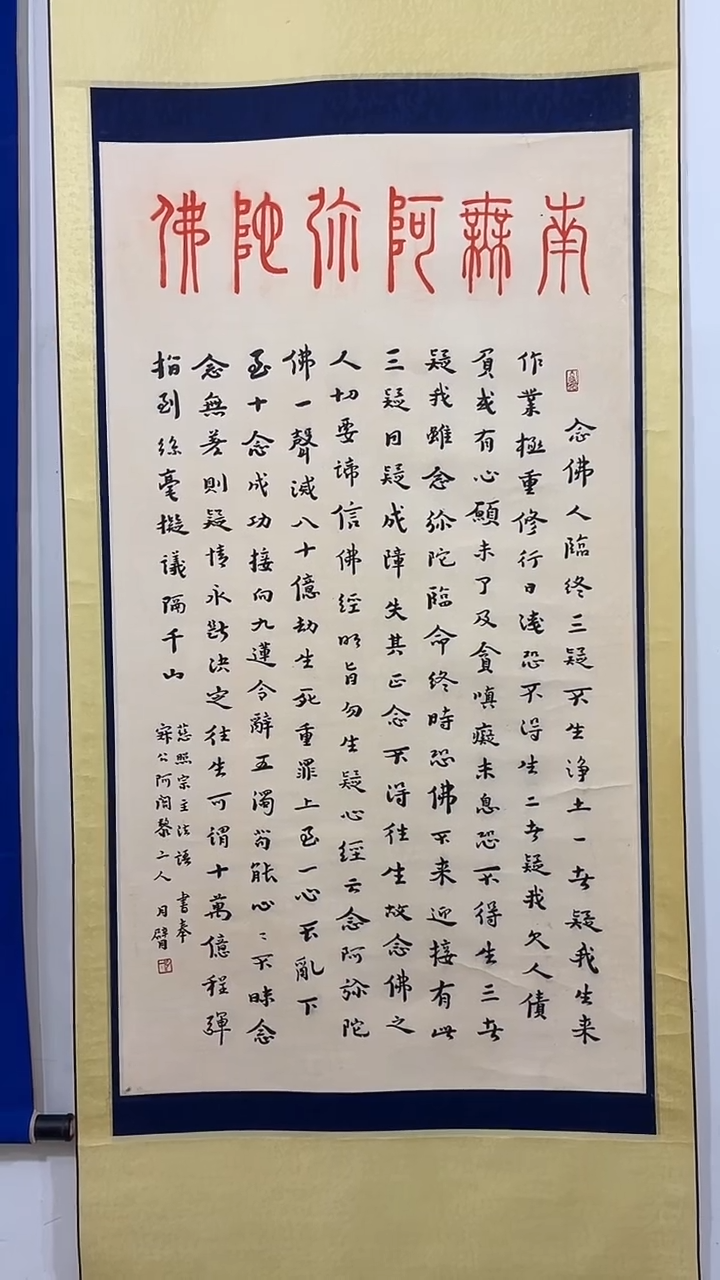 南無阿彌陀佛
念佛人臨終三疑不生淨土一者疑我生来
作業極重修行日淺恐不得生二者疑我欠人債
負或有心願未了及貪嗔癡未息恐不得生三者
疑我雖念弥陀臨命終時恐佛不来迎接有此
三疑因疑成障失其正念不得往生故念佛之
人切要諦信佛經明旨勿生疑心經云念阿弥陀
佛一聲滅八十億劫生死重罪上至一心不亂下
至十念成功接向九蓮令辭五濁苟能心心不昧念
念無差則疑情永斷決定往生可謂十萬億程彈
指到絲毫擬議隔千山
慈照宗主法語 書奉
寂公阿闍黎上人 月臂